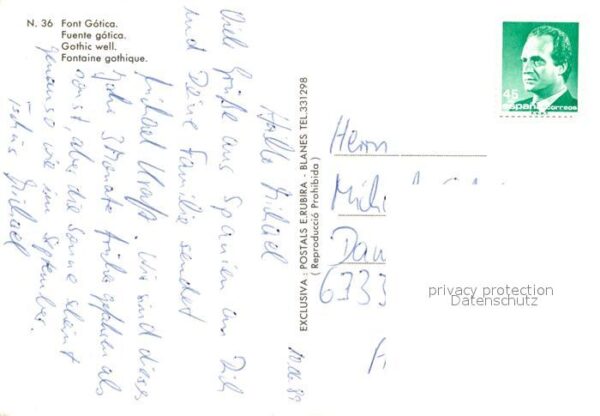 N. 36 Font Gótica.
Fuente gótica.
Gothic well.
Fontaine gothique.
Hallo Michael
Viele Grüße aus Spanien an Dich
und Deine Familie sendet
Michael. Wir sind dieses
Jahr 3 Monate früher gefahren als
sonst, aber die Sonne scheint
genauso wie im September.
Tschüs Michael
10.06.89
EXCLUSIVA: POSTALS E.RUBIRA - BLANES TEL.331298
(Reproducció Prohibida)
45
España correos
Herrn
Mich
Dau
6333
privacy protection
Datenschutz